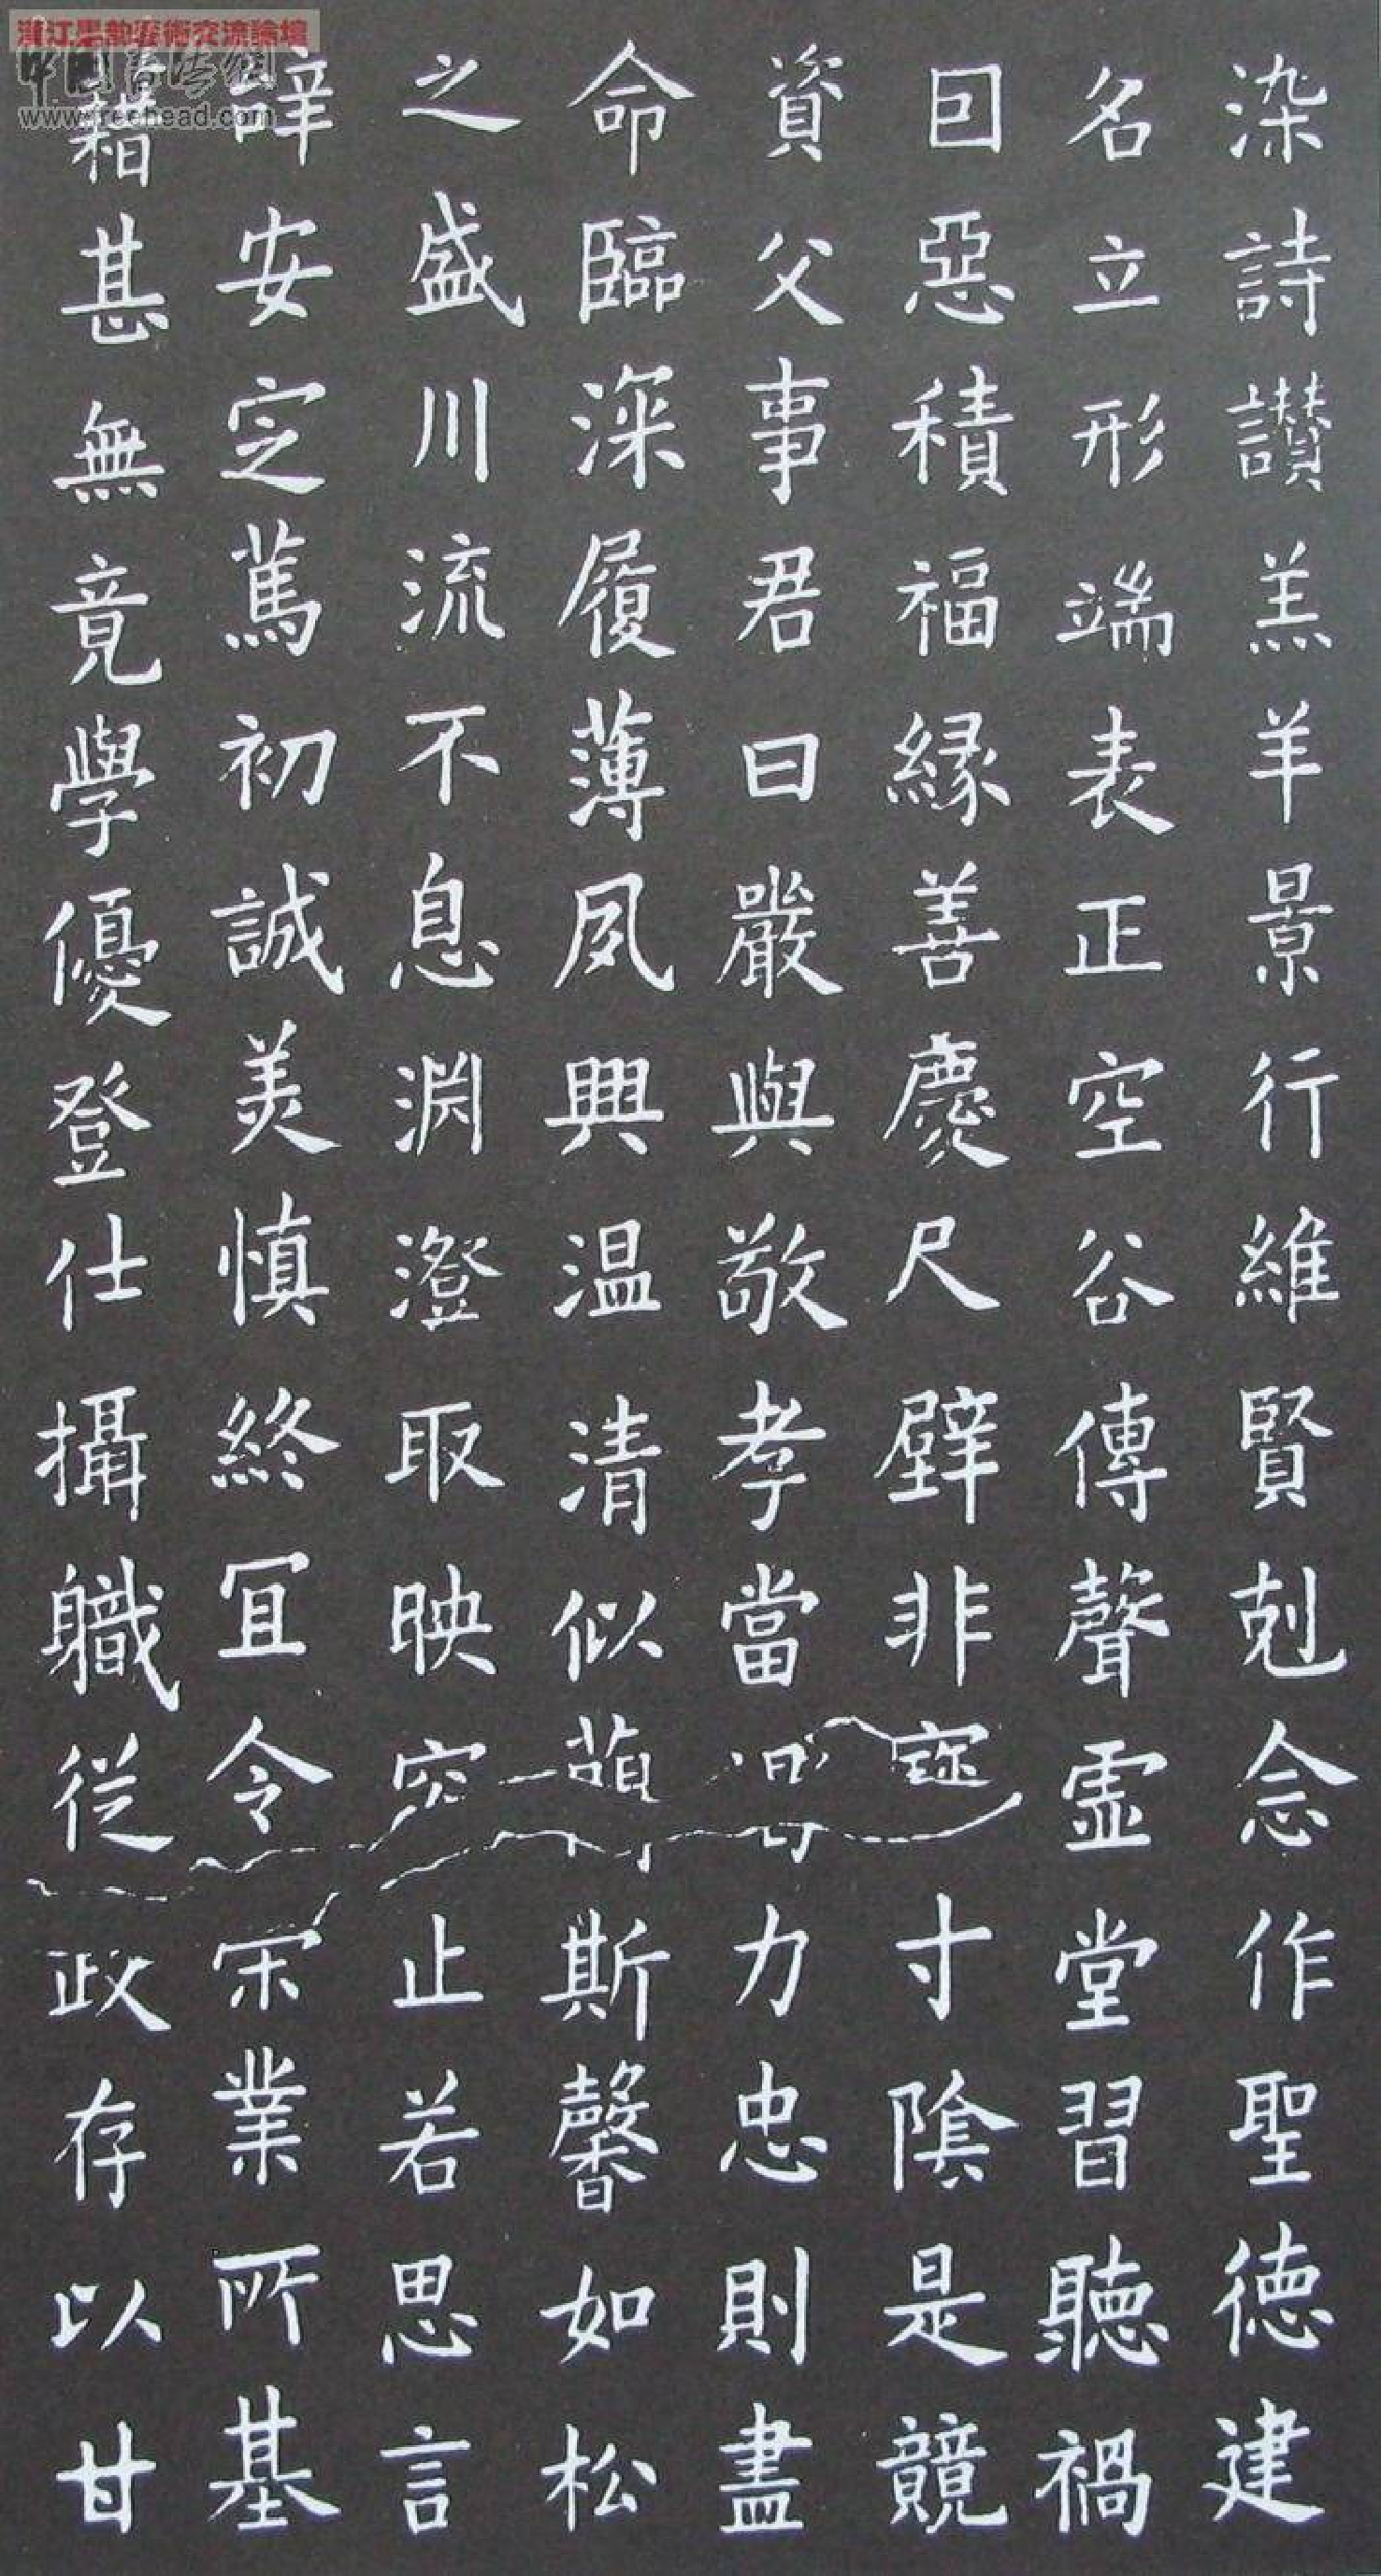 中國書法網
www.freehead.com
染詩讃羔羊景行維賢剋念作聖徳建
名立形端表正空谷傳聲虛堂習聽禍
因惡積福緣善慶尺璧非寶寸陰是競
資父事君曰嚴與敬孝當竭力忠則盡
命臨深履薄夙興温清似蘭斯馨如松
之盛川流不息淵澄取映容止若思言
辭安定篤初誠美慎終宜令榮業所基
籍甚無竟學優登仕攝職從政存以甘